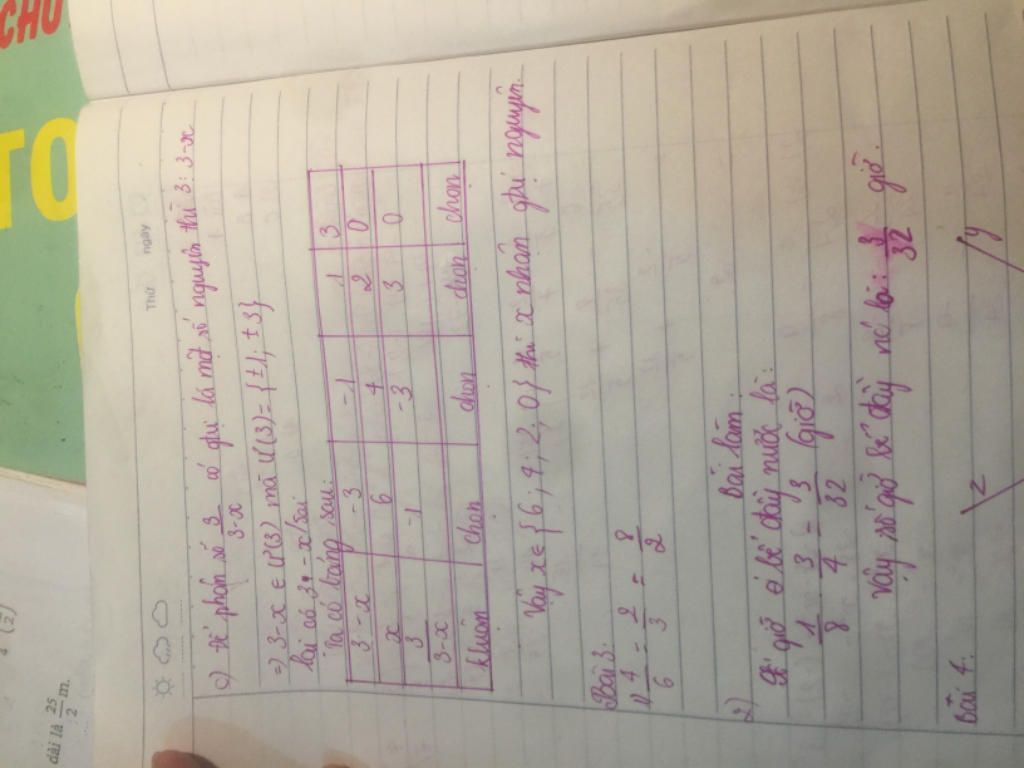 CHU
TO
dài là 25/2 m.
Thứ ngày
c) Để phân số 3/3-x có giá là một số nguyên thì 3 : 3-x
=> 3-x ∈ Ư(3) mà Ư(3) = {±1; ±3}
Ta có bảng sau:
3-x | -3 | -1 | 1 | 3
x | 6 | 4 | 2 | 0
3/3-x | -1 | -3 | 3 | 0
| chọn | chọn | chọn | chọn
Vậy x ∈ {6; 4; 2; 0} thì x nhận giá nguyên.
Bài 3:
1) 4/6 = 2/3 = 8/2
2) Bài làm:
giờ bể đầy nước là:
1/8 · 3/4 = 3/32 (giờ)
Vậy số giờ bể đầy nó là: 3/32 giờ.
Bài 4.
z y